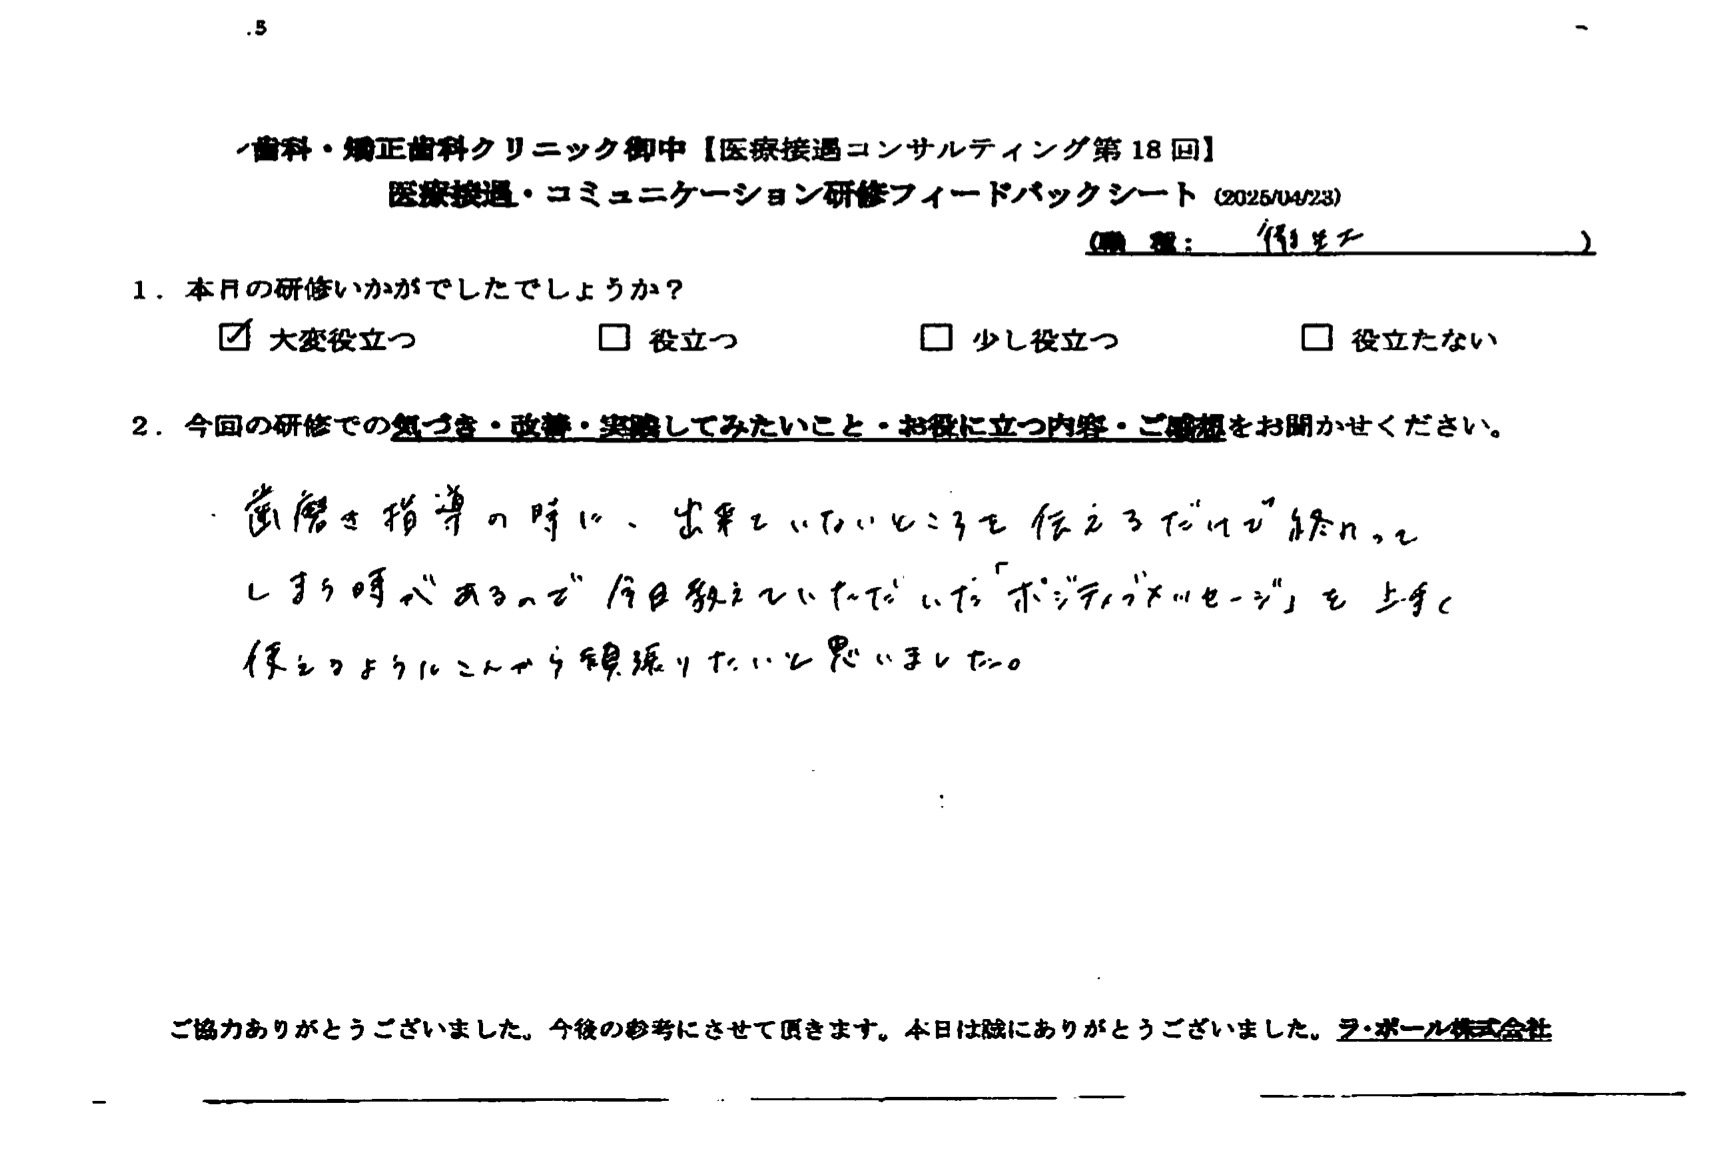 .5
歯科・矯正歯科クリニック御中【医療接遇コンサルティング第 18 回】
医療接遇・コミュニケーション研修フィードバックシート (2025/04/23)
(職 種: 衛生士 )
1. 本日の研修いかがでしたでしょうか？
☑ 大変役立つ □ 役立つ □ 少し役立つ □ 役立たない
2. 今回の研修での気づき・改善・実践してみたいこと・お役に立つ内容・ご感想をお聞かせください。
歯磨き指導の時に、出来ていないところを伝えるだけで終わって
しまう時があるので今日教えていただいた「ポジティブメッセージ」を上手く
使えるようにこれから頑張りたいと思いました。
ご協力ありがとうございました。今後の参考にさせて頂きます。本日は誠にありがとうございました。ラ・ポール株式会社